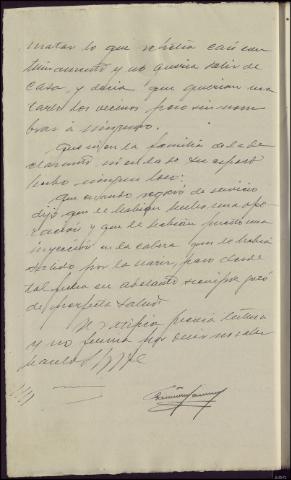 matar lo que repetía casi con
tinuamente y no quería salir de
casa, y decía que querían ma
tarle los vecinos, pero sin nom
brar á ninguno.
Que ni en la familia de la de
clarante ni en la de su esposo
hubo ningun loco.
Que cuando regresó de servicio
dijo que le habían hecho una ope
ración y que le habían puesto una
inyección en la cabeza que le había
salido por la nariz, pero desde
tal fecha en adelante siempre gozó
de perfecta salud.
Se ratifica previa lectura
y no firma por decir no saber